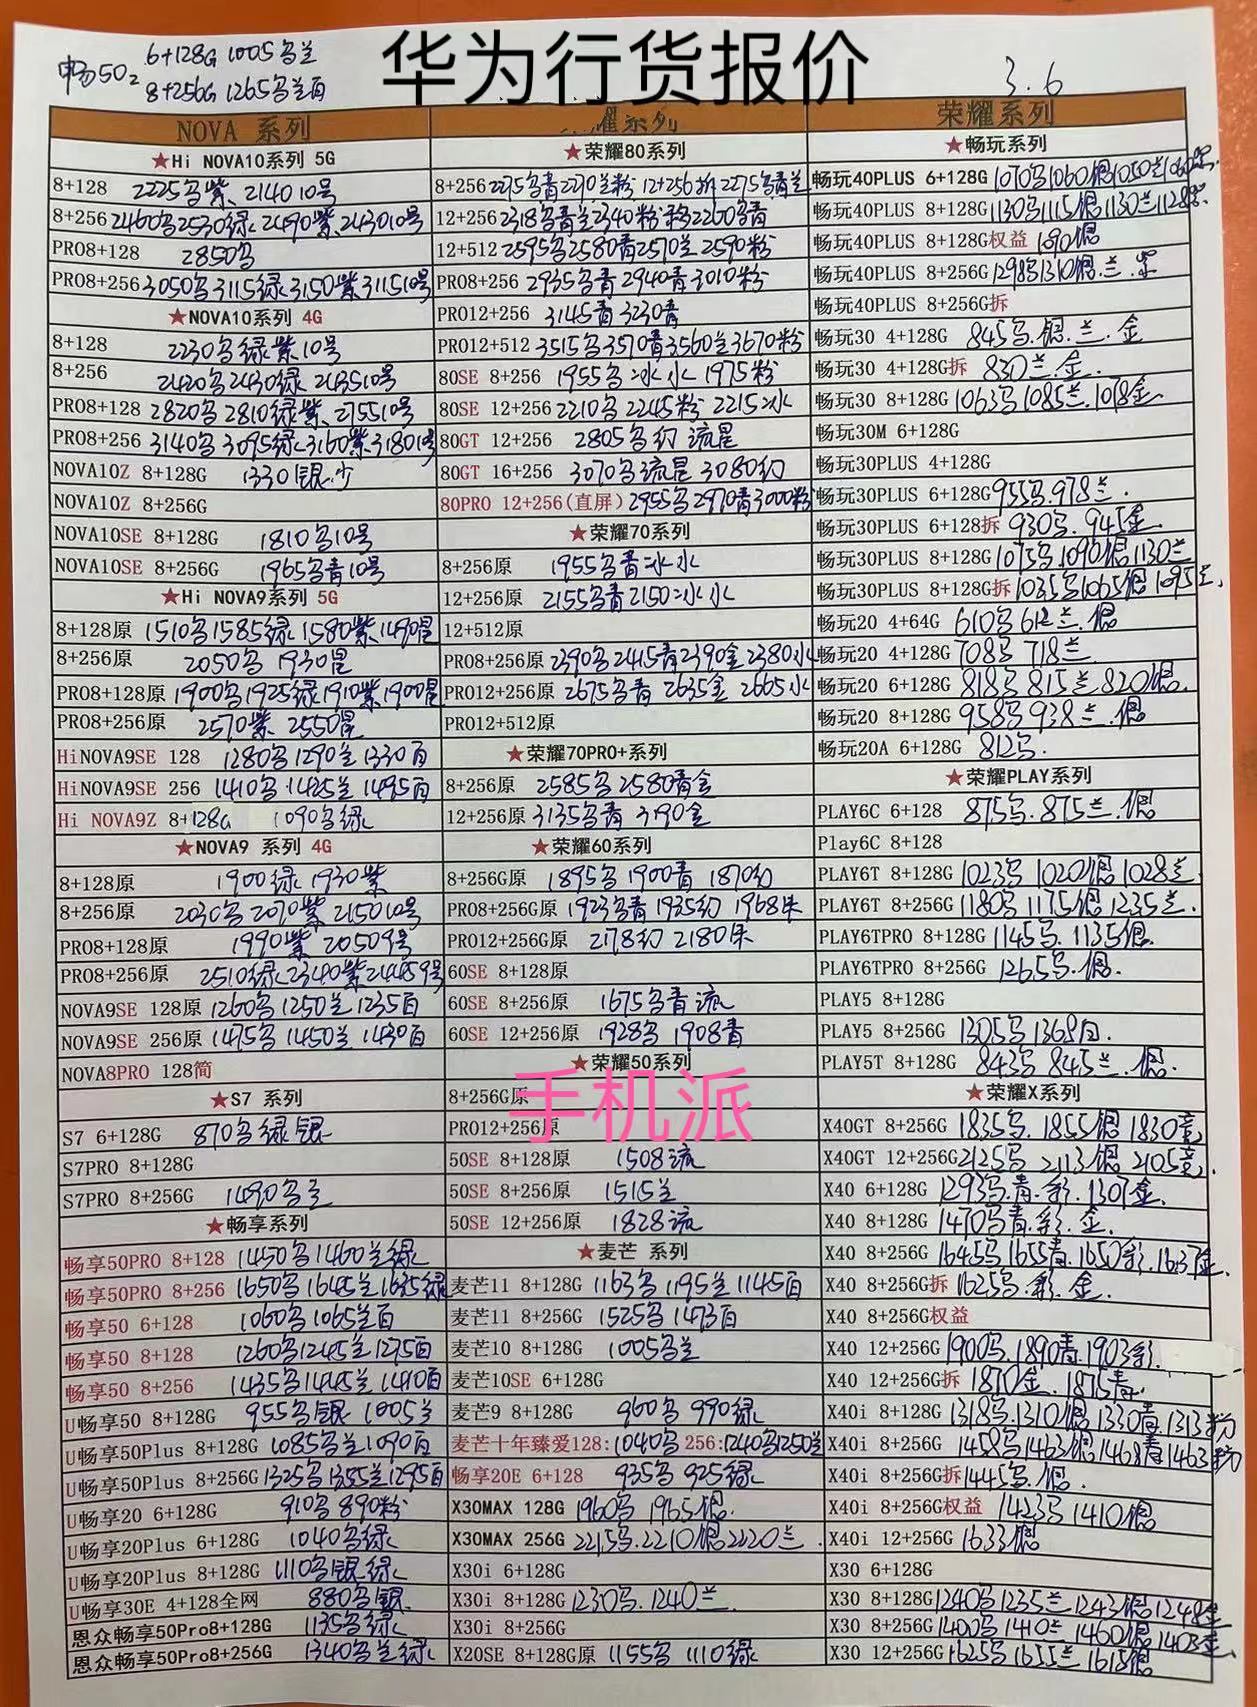 华为行货报价
畅50z 6+128G 1005乌兰
8+256G 1265乌兰白
3.6
NOVA 系列
★Hi NOVA10系列 5G
8+128 2225乌紫、2140 10号
8+256 2460乌2530绿、2490紫、2430 10号
PRO8+128 2850乌
PRO8+256 3050乌3115绿3150紫3115 10号
★NOVA10系列 4G
8+128 2230乌绿紫10号
8+256 2420乌2430绿 2435 10号
PRO8+128 2820乌 2810绿紫、2755 10号
PRO8+256 3140乌3095绿3160紫3180
NOVA10Z 8+128G 1330银少
NOVA10Z 8+256G
NOVA10SE 8+128G 1810乌10号
NOVA10SE 8+256G 1965乌青10号
★Hi NOVA9系列 5G
8+128原 1510乌1585绿1580紫1490星
8+256原 2050乌 1930星
PRO8+128原 1900乌1925绿1910紫1900星
PRO8+256原 2570紫 2550星
HiNOVA9SE 128 1280乌1290兰1330白
HiNOVA9SE 256 1410乌1425兰1495白
Hi NOVA9Z 8+128G 1090乌绿
★NOVA9 系列 4G
8+128原 1900绿1930紫
8+256原 2030乌2070紫2150 10号
PRO8+128原 1990紫 2050 9号
PRO8+256原 2510绿2340紫2445 9号
NOVA9SE 128原 1260乌1250兰1235白
NOVA9SE 256原 1475乌1450兰1430白
NOVA8PRO 128简
★S7 系列
S7 6+128G 870乌绿银
S7PRO 8+128G
S7PRO 8+256G 1490乌兰
★畅享系列
畅享50PRO 8+128 1450乌1460兰绿
畅享50PRO 8+256 1650乌1645兰1635绿
畅享50 6+128 1060乌1065兰白
畅享50 8+128 1260乌1245兰1275白
畅享50 8+256 1435乌1445兰1440白
U畅享50 8+128G 955乌银 1005兰
U畅享50Plus 8+128G 1085乌兰1090白
U畅享50Plus 8+256G 1325乌1355兰1295白
U畅享20 6+128G 910乌 890粉
U畅享20Plus 6+128G 1040乌绿
U畅享20Plus 8+128G 1110乌银绿
U畅享30E 4+128全网 880乌银
恩众畅享50Pro8+128G 1135乌绿
恩众畅享50Pro8+256G 1340乌兰绿
耀系列
★荣耀80系列
8+256 2275乌青2270兰粉 12+256拆2275乌青兰
12+256 2318乌青兰2340粉 移2260乌青
12+512 2595乌2580青2570兰2590粉
PRO8+256 2935乌青 2940青3010粉
PRO12+256 3145青 3230青
PRO12+512 3515乌3570青3560兰3670粉
80SE 8+256 1955乌冰水 1975粉
80SE 12+256 2210乌2245粉 2215冰
80GT 12+256 2805乌幻 流星
80GT 16+256 3070乌流星 3080幻
80PRO 12+256(直屏) 2955乌2970青3000粉
★荣耀70系列
8+256原 1955乌青冰水
12+256原 2155乌青2150冰水
12+512原
PRO8+256原 2390乌2415青2390金2380水
PRO12+256原 2675乌青 2635金 2665水
PRO12+512原
★荣耀70PRO+系列
8+256原 2585乌2580青金
12+256原 3135乌青 3190金
★荣耀60系列
8+256G原 1895乌1900青 1870幻
PRO8+256G原 1923乌青1935幻 1968朱
PRO12+256G原 2178幻 2180朱
60SE 8+128原
60SE 8+256原 1675乌青流
60SE 12+256原 1928乌 1908青
★荣耀50系列
手机派
8+256G原
PRO12+256原
50SE 8+128原 1508流
50SE 8+256原 1515兰
50SE 12+256原 1828流
★麦芒 系列
麦芒11 8+128G 1163乌1195兰1145白
麦芒11 8+256G 1525乌1473白
麦芒10 8+128G 1005乌兰
麦芒10SE 6+128G
麦芒9 8+128G 960乌 990绿
麦芒十年臻爱128:1040乌 256:1240乌1250兰
畅享20E 6+128 935乌 925绿
X30MAX 128G 1960乌 1965银.
X30MAX 256G 2215乌.2210银2220兰.
X30i 6+128G
X30i 8+128G 1230乌.1240兰.
X30i 8+256G
X20SE 8+128G原 1155乌 1110绿
荣耀系列
★畅玩系列
畅玩40PLUS 6+128G 1070乌1060银1050兰1060紫.
畅玩40PLUS 8+128G 1130乌1115银1130兰1128紫.
畅玩40PLUS 8+128G权益 1090银
畅玩40PLUS 8+256G 1298乌1310银.兰.紫
畅玩40PLUS 8+256G拆
畅玩30 4+128G 845乌.银.兰.金
畅玩30 4+128G拆 830兰.金.
畅玩30 8+128G 1063乌1085兰.1078金
畅玩30M 6+128G
畅玩30PLUS 4+128G
畅玩30PLUS 6+128G 955乌.978兰.
畅玩30PLUS 6+128拆 930乌.945金.
畅玩30PLUS 8+128G 1075乌.1090银1130兰
畅玩30PLUS 8+128G拆 1035乌1065银1095兰.
畅玩20 4+64G 610乌612兰.银
畅玩20 4+128G 708乌 718兰
畅玩20 6+128G 818乌 815兰 820银.
畅玩20 8+128G 958乌 938兰.银
畅玩20A 6+128G 812乌.
★荣耀PLAY系列
PLAY6C 6+128 875乌.875兰.银
Play6C 8+128
PLAY6T 8+128G 1023乌 1020银1028兰
PLAY6T 8+256G 1180乌 1175银1235兰.
PLAY6TPRO 8+128G 1145乌.1135银
PLAY6TPRO 8+256G 1265乌.银.
PLAY5 8+128G
PLAY5 8+256G 1305乌1368白.
PLAY5T 8+128G 843乌 845兰.银.
★荣耀X系列
X40GT 8+256G 1835乌.1855银1830竞
X40GT 12+256G 2125乌 2113银 2105竞.
X40 6+128G 1293乌.青.彩.1307金.
X40 8+128G 1470乌青.彩.金.
X40 8+256G 1645乌1655青.1650彩.1637金.
X40 8+256G拆 1625乌.彩.金.
X40 8+256G权益
X40 12+256G 1900乌.1890青.1903彩.
X40 12+256G拆 1870金.1875青.
X40i 8+128G 1318乌.1310银1330青.1313粉
X40i 8+256G 1458乌1463银1468青1463粉
X40i 8+256G拆 1445乌.银.
X40i 8+256G权益 1423乌 1410银
X40i 12+256G 1633银
X30 6+128G
X30 8+128G 1240乌1235兰1243银1248金
X30 8+256G 1400乌1410兰1460银1403金.
X30 12+256G 1625乌 1655兰 1615银